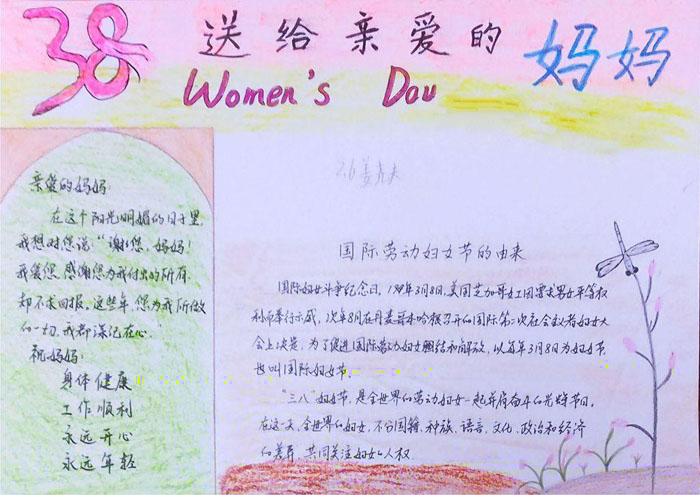 38 送给亲爱的 妈妈
Women's Dau
亲爱的妈妈:
在这个阳光明媚的日子里,
我想对您说:"谢谢您,妈妈!
我爱您,感谢您为我付出的所有,
却不求回报。这些年,您为我所做
的一切,我都深记在心。"
祝妈妈:
身体健康
工作顺利
永远开心
永远年轻
国际劳动妇女节的由来
国际妇女斗争纪念日,1909年3月8日,美国芝加哥女工因要求男女平等权
利而举行示威,次年8月在丹麦哥本哈根召开的国际第二次社会主义者妇女大
会上决定,为了促进国际劳动妇女团结和解放,以每年3月8日为妇女节,
也叫国际妇女节。
"三八"妇女节,是全世界的劳动妇女一起并肩奋斗的光辉节日。
在这一天,全世界的妇女,不分国籍、种族、语言、文化、政治和经济
的差异,共同关注妇女的人权